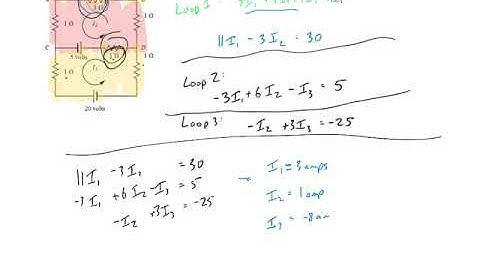 3 Ω
1 Ω
1 Ω
C
5 volts
1 Ω
1 Ω
20 volts
Loop 1:
11I₁ - 3I₂ = 30
Loop 2:
-3I₁ + 6I₂ - I₃ = 5
Loop 3: -I₂ + 3I₃ = -25
11I₁ - 3I₂ = 30
-3I₁ + 6I₂ - I₃ = 5
-I₂ + 3I₃ = -25
→ I₁ = 3 amps
I₂ = 1 amp
I₃ = -8 am